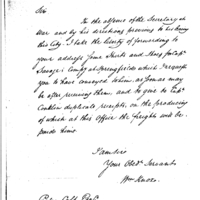 Sir
In the absence of the Secretary at
War and by his directions previous to his leaving
this City. I take the liberty of forwarding to
your address some Shirts and Shoes for Capt
Savage's Comp'y at Springfield which I request
you to have conveyed to him, as soon as may
be after receiving them and to give to Capt
duplicate receipts, on the producing
of which at this office the freight will be
paid him.
I am Sir
Your Obed. Servant
Wm Knox.